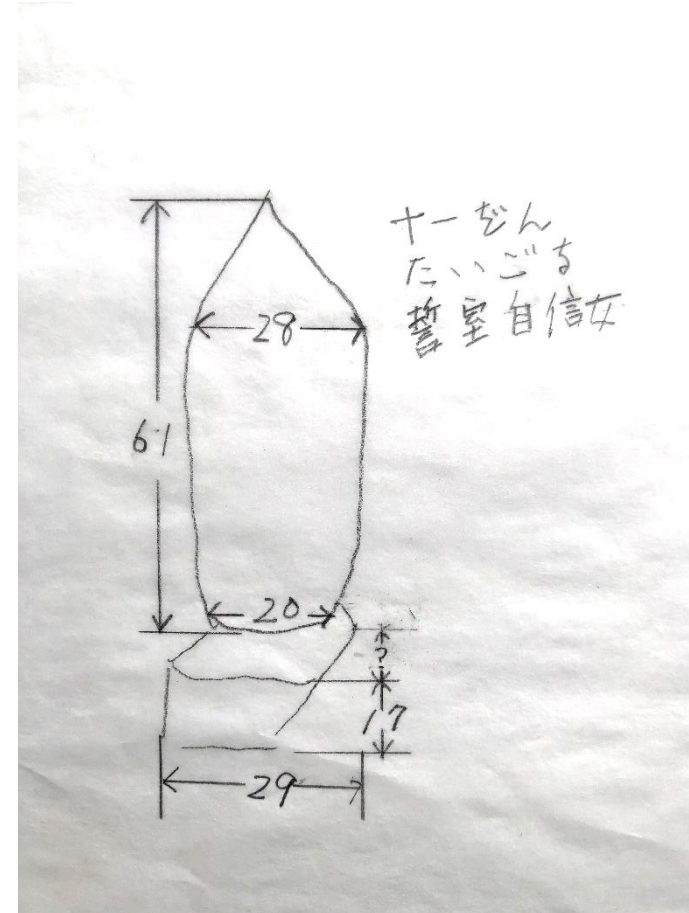 十一だん
たいごる
誓室自信女
28
61
20
?
17
29